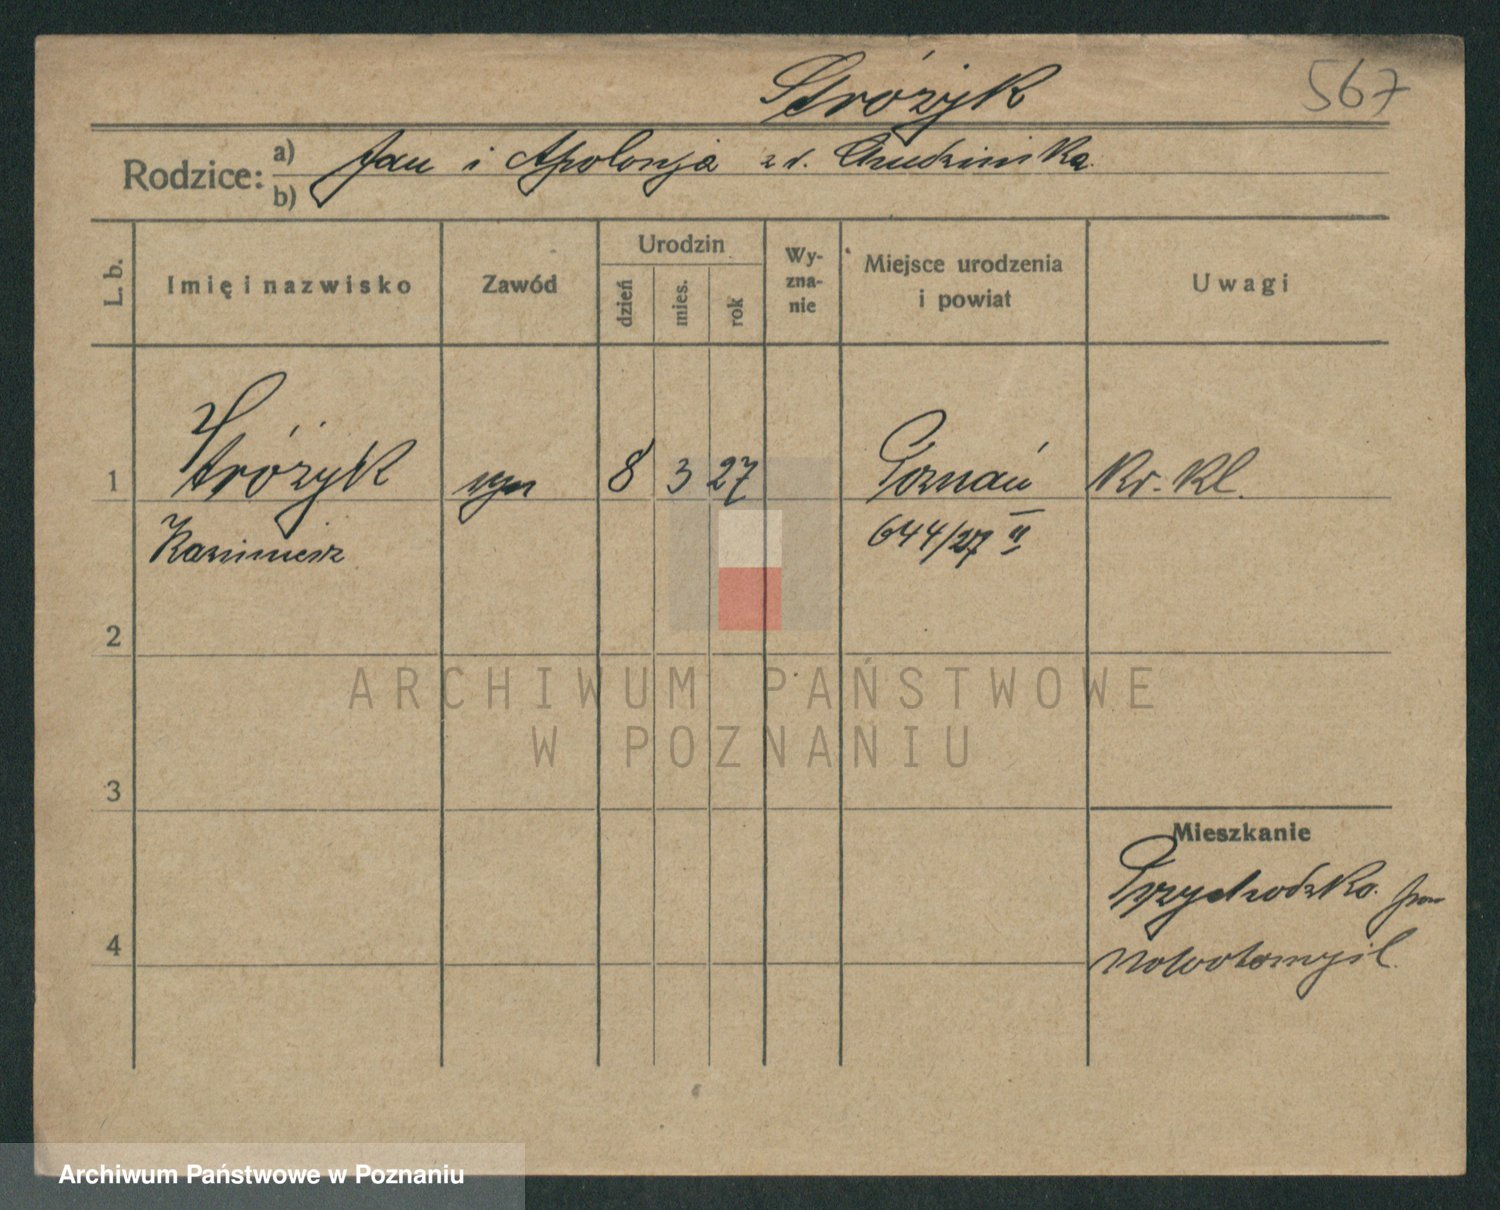 Stróżyk 567
Rodzice: a) Jan i Apolonja z d. Chudzińska.
b)
L. b. Imię i nazwisko Zawód Urodzin dzień mies. rok Wy-zna-nie Miejsce urodzenia i powiat Uwagi
1 Stróżyk syn 8 3 27 Poznań Kr. Kl.
Kazimierz 644/27 II
2
3
Mieszkanie
Przychodzko. pow
4 Nowotomyśl.
ARCHIWUM PAŃSTWOWE
W POZNANIU
Archiwum Państwowe w Poznaniu